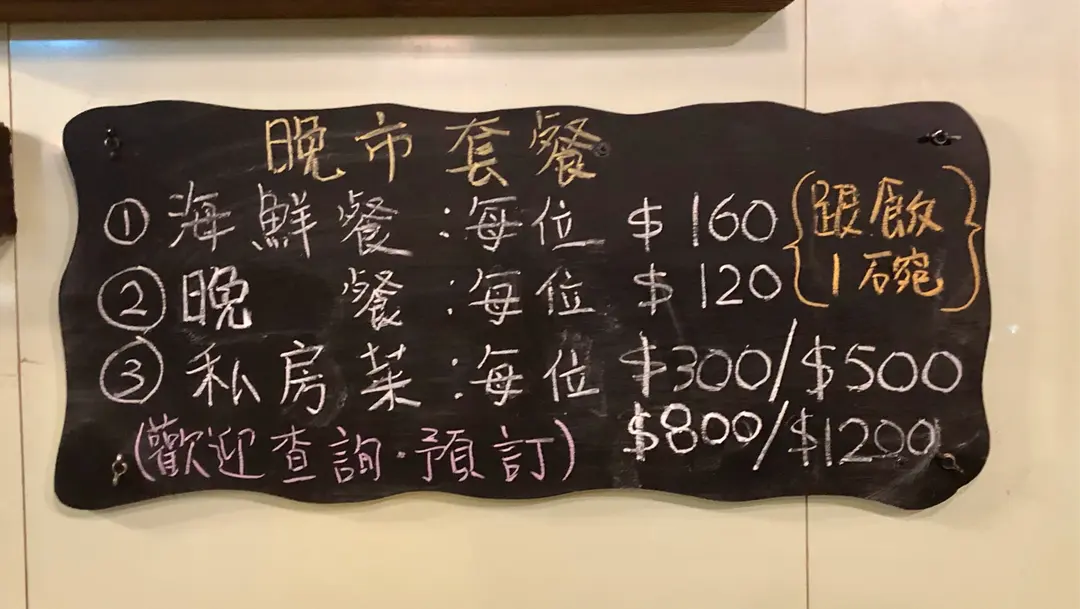 晚市套餐
①海鮮餐:每位 $160
②晚餐:每位 $120
{跟飯1碗}
③私房菜:每位 $300/$500
$800/$1200
(歡迎查詢·預訂)